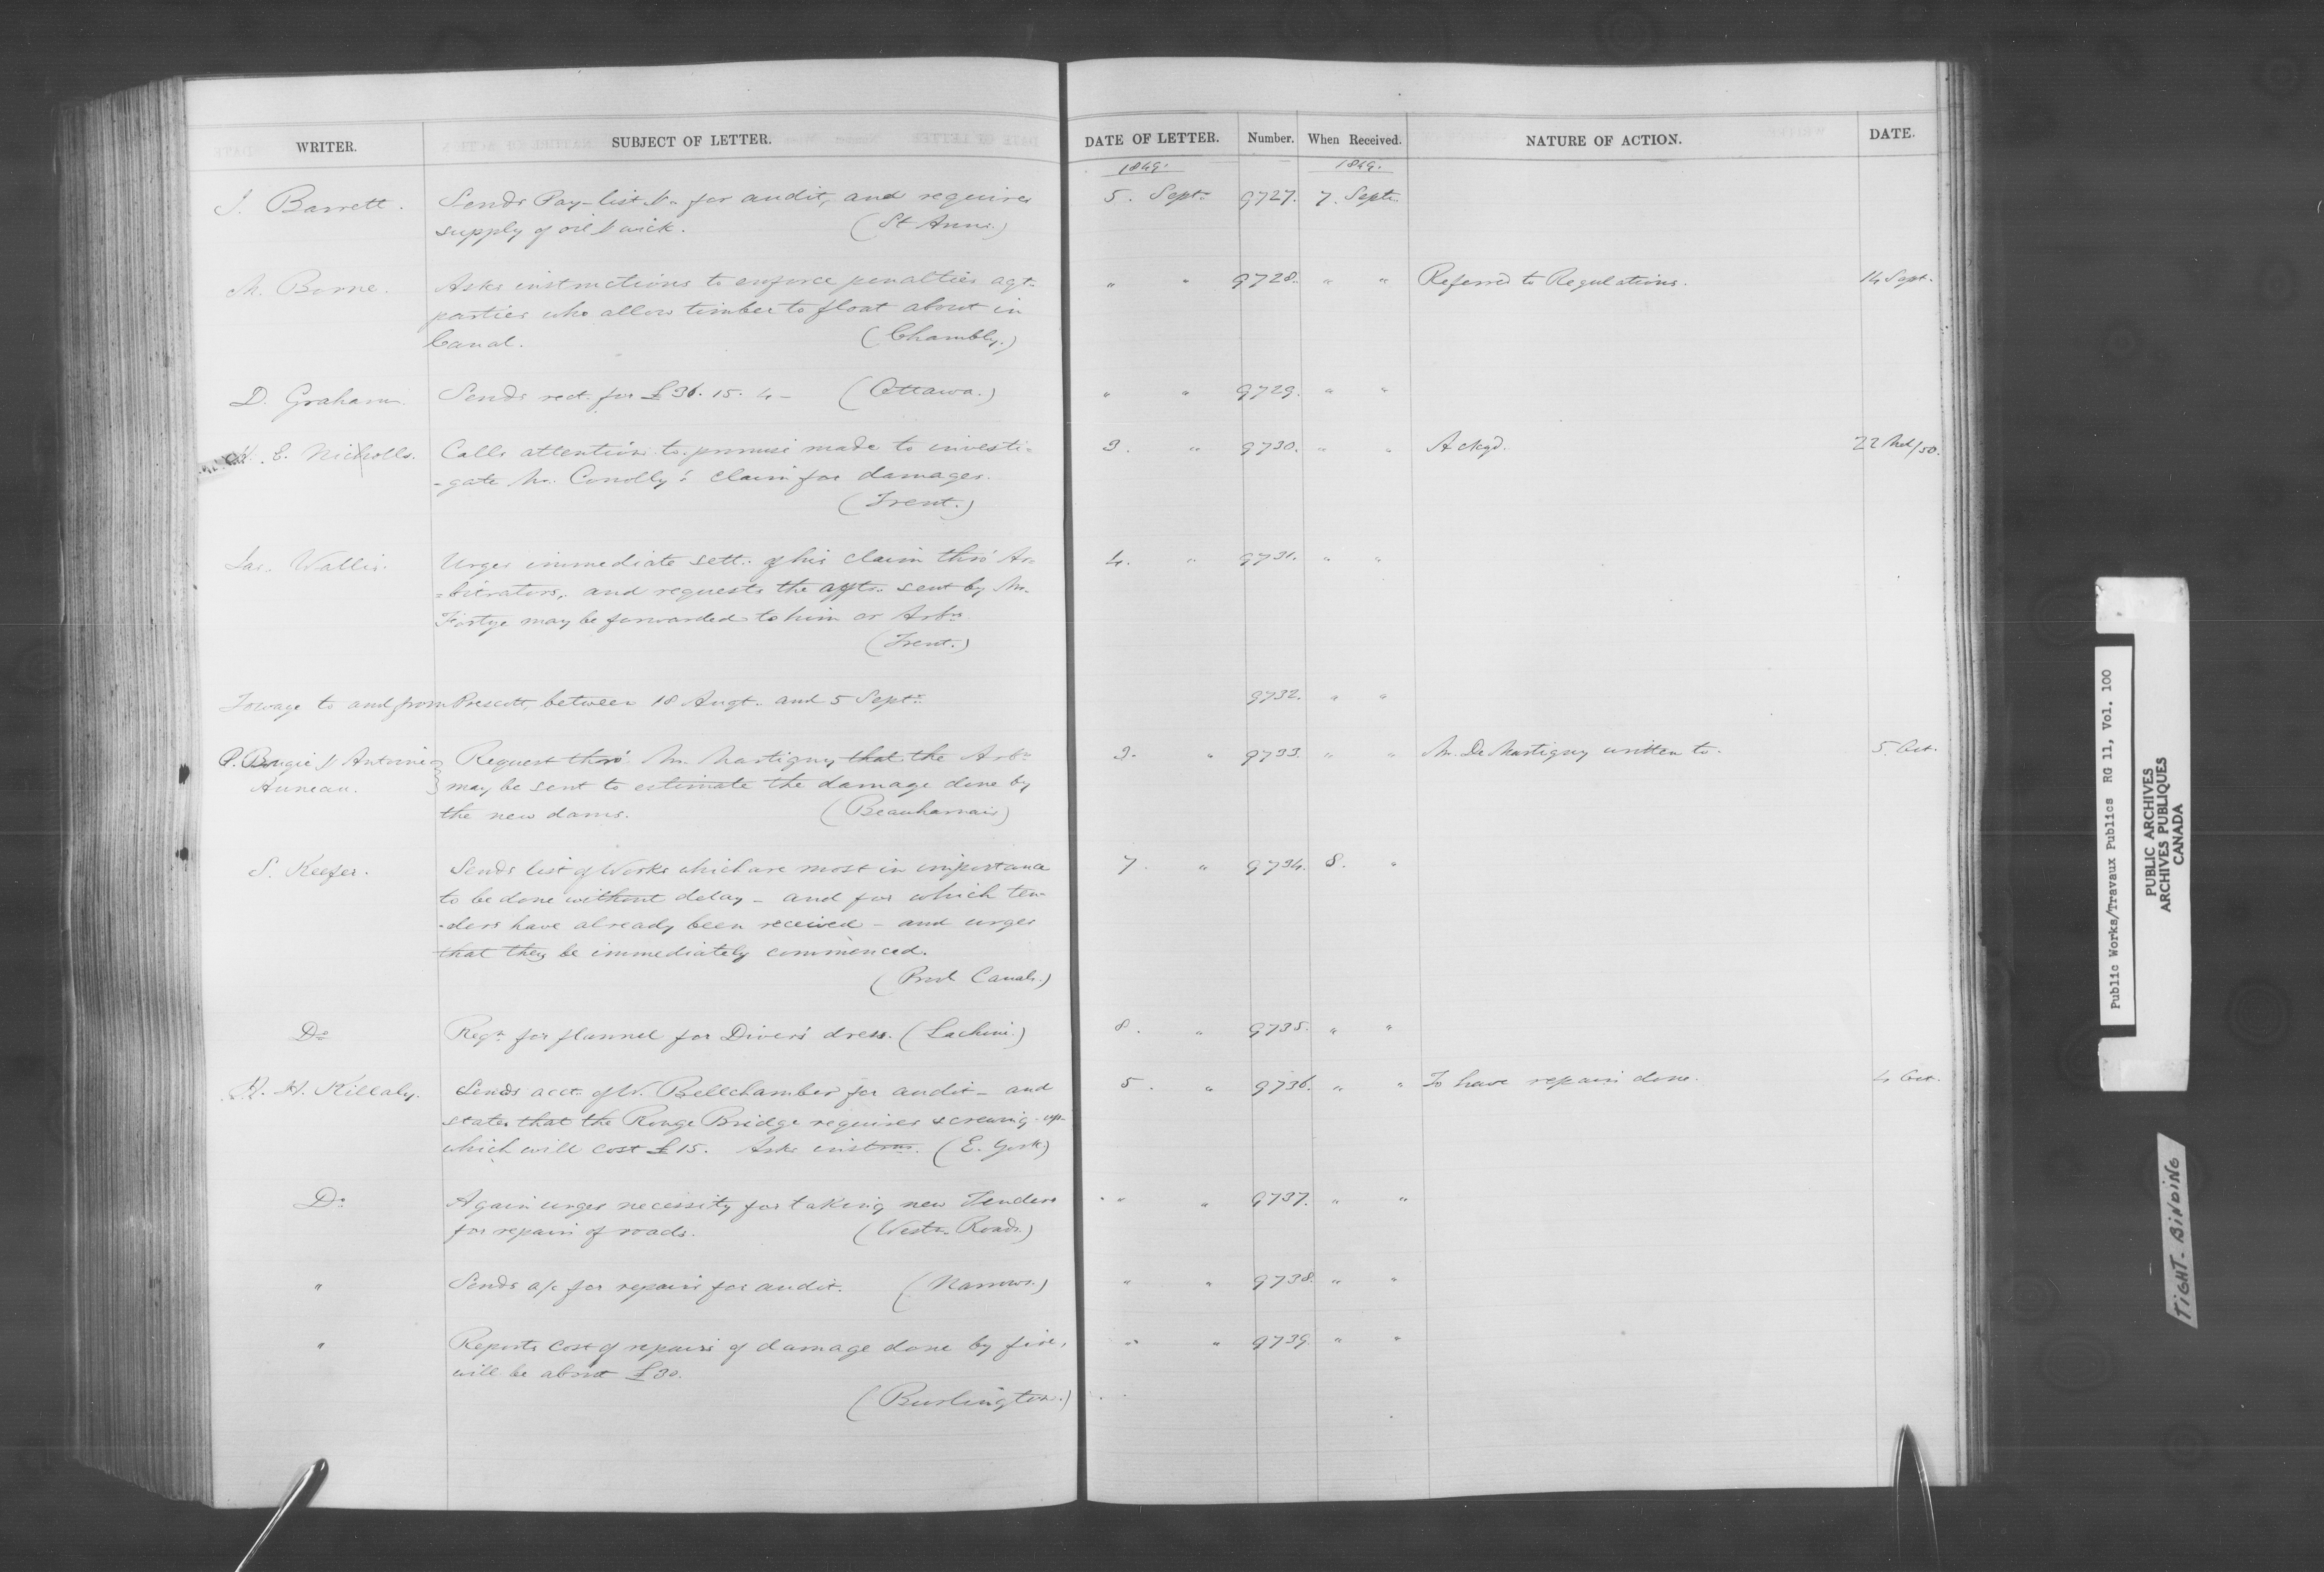 WRITER. SUBJECT OF LETTER. DATE OF LETTER. Number. When Received. NATURE OF ACTION. DATE.
1849. 1849.
J. Barrett. Sends Pay-list &c for audit, and requires 5. Septr. 9727. 7. Septr.
supply of oil & wick. (St Anns.)
M. Borne. Asks instructions to enforce penalties agt. " " 9728. " " Referred to Regulations. 14 Sept.
parties who allow timber to float about in
Canal. (Chambly.)
D. Graham. Sends rect. for £36. 15. 4 - (Ottawa.) " " 9729. " "
E. Nicholls. Calls attention to promise made to investi- 3. " 9730. " " Ackgd. 22 Mch/50.
-gate Mr. Conolly's claim for damages.
(Trent.)
Jas. Wallis. Urges immediate sett. of his claim thro' Ar- 4. " 9731. " "
=bitrators, and requests the accts. sent by Mr.
Fortye may be forwarded to him or Arbrs.
(Trent.)
Towage to and from Prescott, between 18 Augt. and 5 Septr. 9732. " "
P. Bougie & Antoine Request thro' Mr. Martigny that the Arbrs 3. " 9733. " " Mr. De Martigny written to. 5. Oct.
Auneau. may be sent to estimate the damage done by
the new dams. (Beauharnais)
S. Keefer. Sends list of Works which are most in importance 7. " 9734. 8. "
to be done without delay - and for which ten-
-ders have already been received - and urges
that they be immediately commenced.
(Prov Canals.)
Do Reqn. for flannel for Divers' dress. (Lachine.) 8. " 9735. " "
H. H. Killaly. Sends acct. of W. Bellchamber for audit - and 5. " 9736. " " To have repairs done. 4 Oct.
states that the Rouge Bridge requires screwing-up-
which will cost £15. Asks instrns. (E. York)
Do Again urges necessity for taking new Tenders " " 9737. " "
for repairs of roads. (Westn. Roads.)
" Sends a/c for repairs for audit. (Narrows.) " " 9738. " "
" Reports cost of repairs of damage done by fire, " " 9739. " "
will be about £30.
(Burlington.)
Public Works/Travaux Publics RG 11, Vol. 100
PUBLIC ARCHIVES
ARCHIVES PUBLIQUES
CANADA
TIGHT BINDING